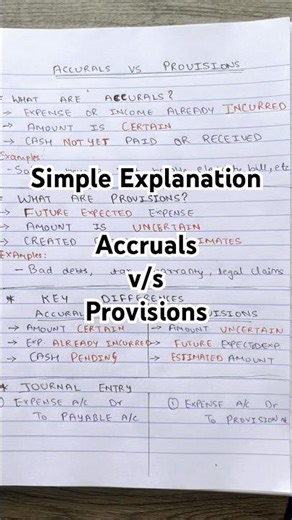 ACCURALS VS PROVISIONS
WHAT ARE ACCURALS?
→ EXPENSE OR INCOME ALREADY INCURRED
→ AMOUNT IS CERTAIN
→ CASH NOT YET PAID OR RECEIVED
Examples:
bill, etc
Simple Explanation
WHAT ARE PROVISIONS?
→ FUTURE EXPECTED EXPENSE
→ AMOUNT IS UNCERTAIN
Accruals
→ CREATED
v/s
EXAMPles:
- Bad debts, warranty, legal claims
Provisions
* KEY DIFFERENCES
ACCURAL
→ AMOUNT CERTAIN → AMOUNT UNCERTAIN
→ EXP. ALREADY INCURRED → FUTURE EXPECTED EXP.
→ CASH PENDING → ESTIMATED AMOUNT
* JOURNAL ENTRY
① EXPENSE A/C Dr ① EXPENSE A/C Dr
To PAYABLE A/C To PROVISION